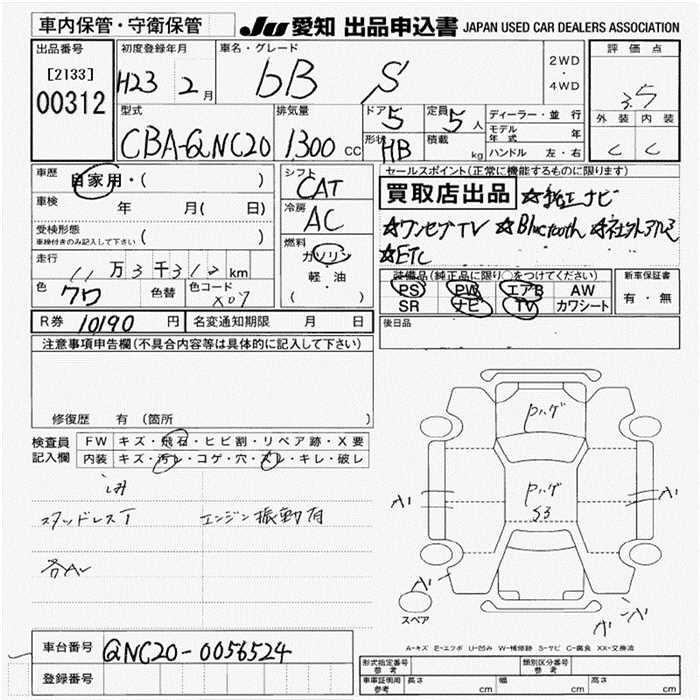 車内保管・守衛保管
JU 愛知 出品申込書 JAPAN USED CAR DEALERS ASSOCIATION
出品番号
[2133]
00312
初度登録年月
H23 2月
車名・グレード
bB S
2WD
・
4WD
評価点
3.5
外装 内装
C C
型式
CBA-QNC20
排気量
1300 CC
ドア 5
定員 5 人
形状 HB
積載 kg
ディーラー・並行
モデル年式 年
ハンドル 左・右
車歴 自家用・( )
車検 年 月( 日)
受検形態
車検付きのみ記入して下さい ( )
走行 11万3千31 km
色 クロ 色替 色コード X07
シフト
CAT
冷房
AC
燃料
ガソリン
軽・油
( )
セールスポイント(正常に機能するものに限ります)
買取店出品 ☆純正ナビ
☆ワンセグTV ☆Bluetooth ☆社外アルミ
☆ETC
装備品(純正品に限り○をつけてください)
PS PW エアB AW
SR ナビ TV カワシート
新車保証書
有・無
後日品
R券 10190 円 名変通知期限 月 日
注意事項申告欄(不具合内容等は具体的に記入して下さい)
修復歴 有(箇所 )
検査員記入欄
FW キズ・飛石・ヒビ割・リペア跡・X要
内装 キズ・汚レ・コゲ・穴・スレ・キレ・破レ
スタッドレスT エンジン振動有
Pハゲ
Pハゲ
S3
A1
A1
A1
スペア
A-キズ E-エクボ U-凹み W-補修跡 S-サビ C-腐食 XX-交換済
車台番号 QNC20-0056524
登録番号
形式指定番号
参考
類別区分番号
参考
車庫証明用
参考
長さ cm 幅 cm 高さ cm